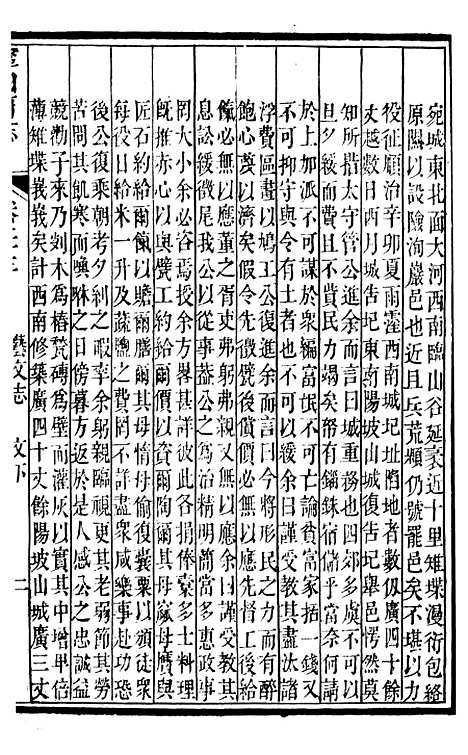 宛城東北面大河西南臨山谷延袤近十里雉堞漫衍包絡
原隰以設險洵巖邑也近且兵荒頻仍號罷邑矣不堪以力
役征願治辛卯夏雨霪西南城圮址陷地者數仞廣四十餘
丈越數日西月城告圮東南陽坡山城復告圮舉邑愕然莫
知所措太守管公進余而言曰城重務也四郊多虞不可以
旦夕緩而費不貲民力竭矣帑有錙銖宿儲乎富室奈何請
於上加派不可謀於衆編富氓不可亡論貧富家括一錢又
不可上可抑守與令其不可以緩余曰謹受教於是計盈汰
浮費區畫以鳩工公復進余曰今將形民之力而有醉
飽心勇以濟矣假令儆甓後償價必無以應先督工後給
餼必無以應董之胥吏弗躬弗親又無以應余曰謹受教其
息訟緩徵尾我公以從事蓋公之為治精明簡肅多惠政事
罔大小余必咨焉授余方畧甚詳彼此各捐俸索多士料理
既推赤心以與甓工約給爾價以資陶爾其母窳母贋與
匠石約給爾餼以贍爾膳爾其母惰母偷復囊粟以須徒衆
每役日給米一升及蔬鹽之費罔不詳盡衆咸樂事赴功恐
後公復乘朝考夕糾之暇率余躬親臨視更其老弱節其勞
苦問其飢寒而噢咻之日傍暮方返於是人感公之忠誠益
競勸子來乃剡木為樁甃磚為壁而灌灰以實其中增卑倍
薄雉堞峩峩矣計西南修築廣四十丈餘陽坡山城廣三丈
藝文志 文下 二